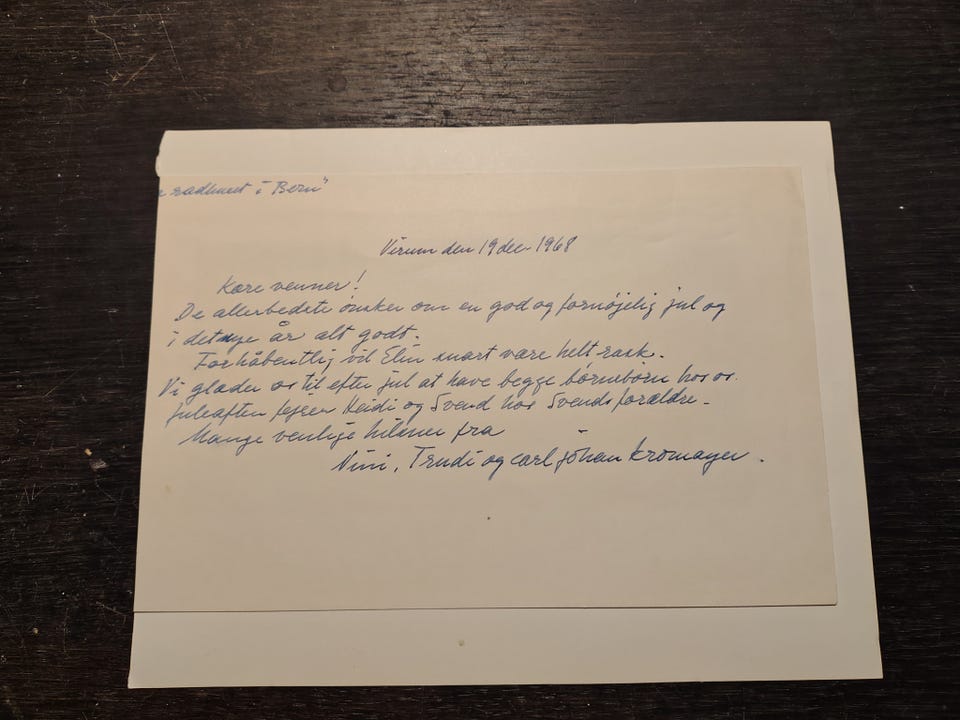 radhuset i Bern"
Virum den 19 dec 1968
Kære venner!
De allerbedste ønsker om en god og fornøjelig jul og
i det nye år alt godt.
Forhåbentlig vil Elin snart være helt rask.
Vi glæder os til efter jul at have begge børnebørn hos os.
Juleaften fejrer Heidi og Svend hos Svends forældre.
Mange venlige hilsner fra
Nini, Trudi og Carl Johan Kromayer.